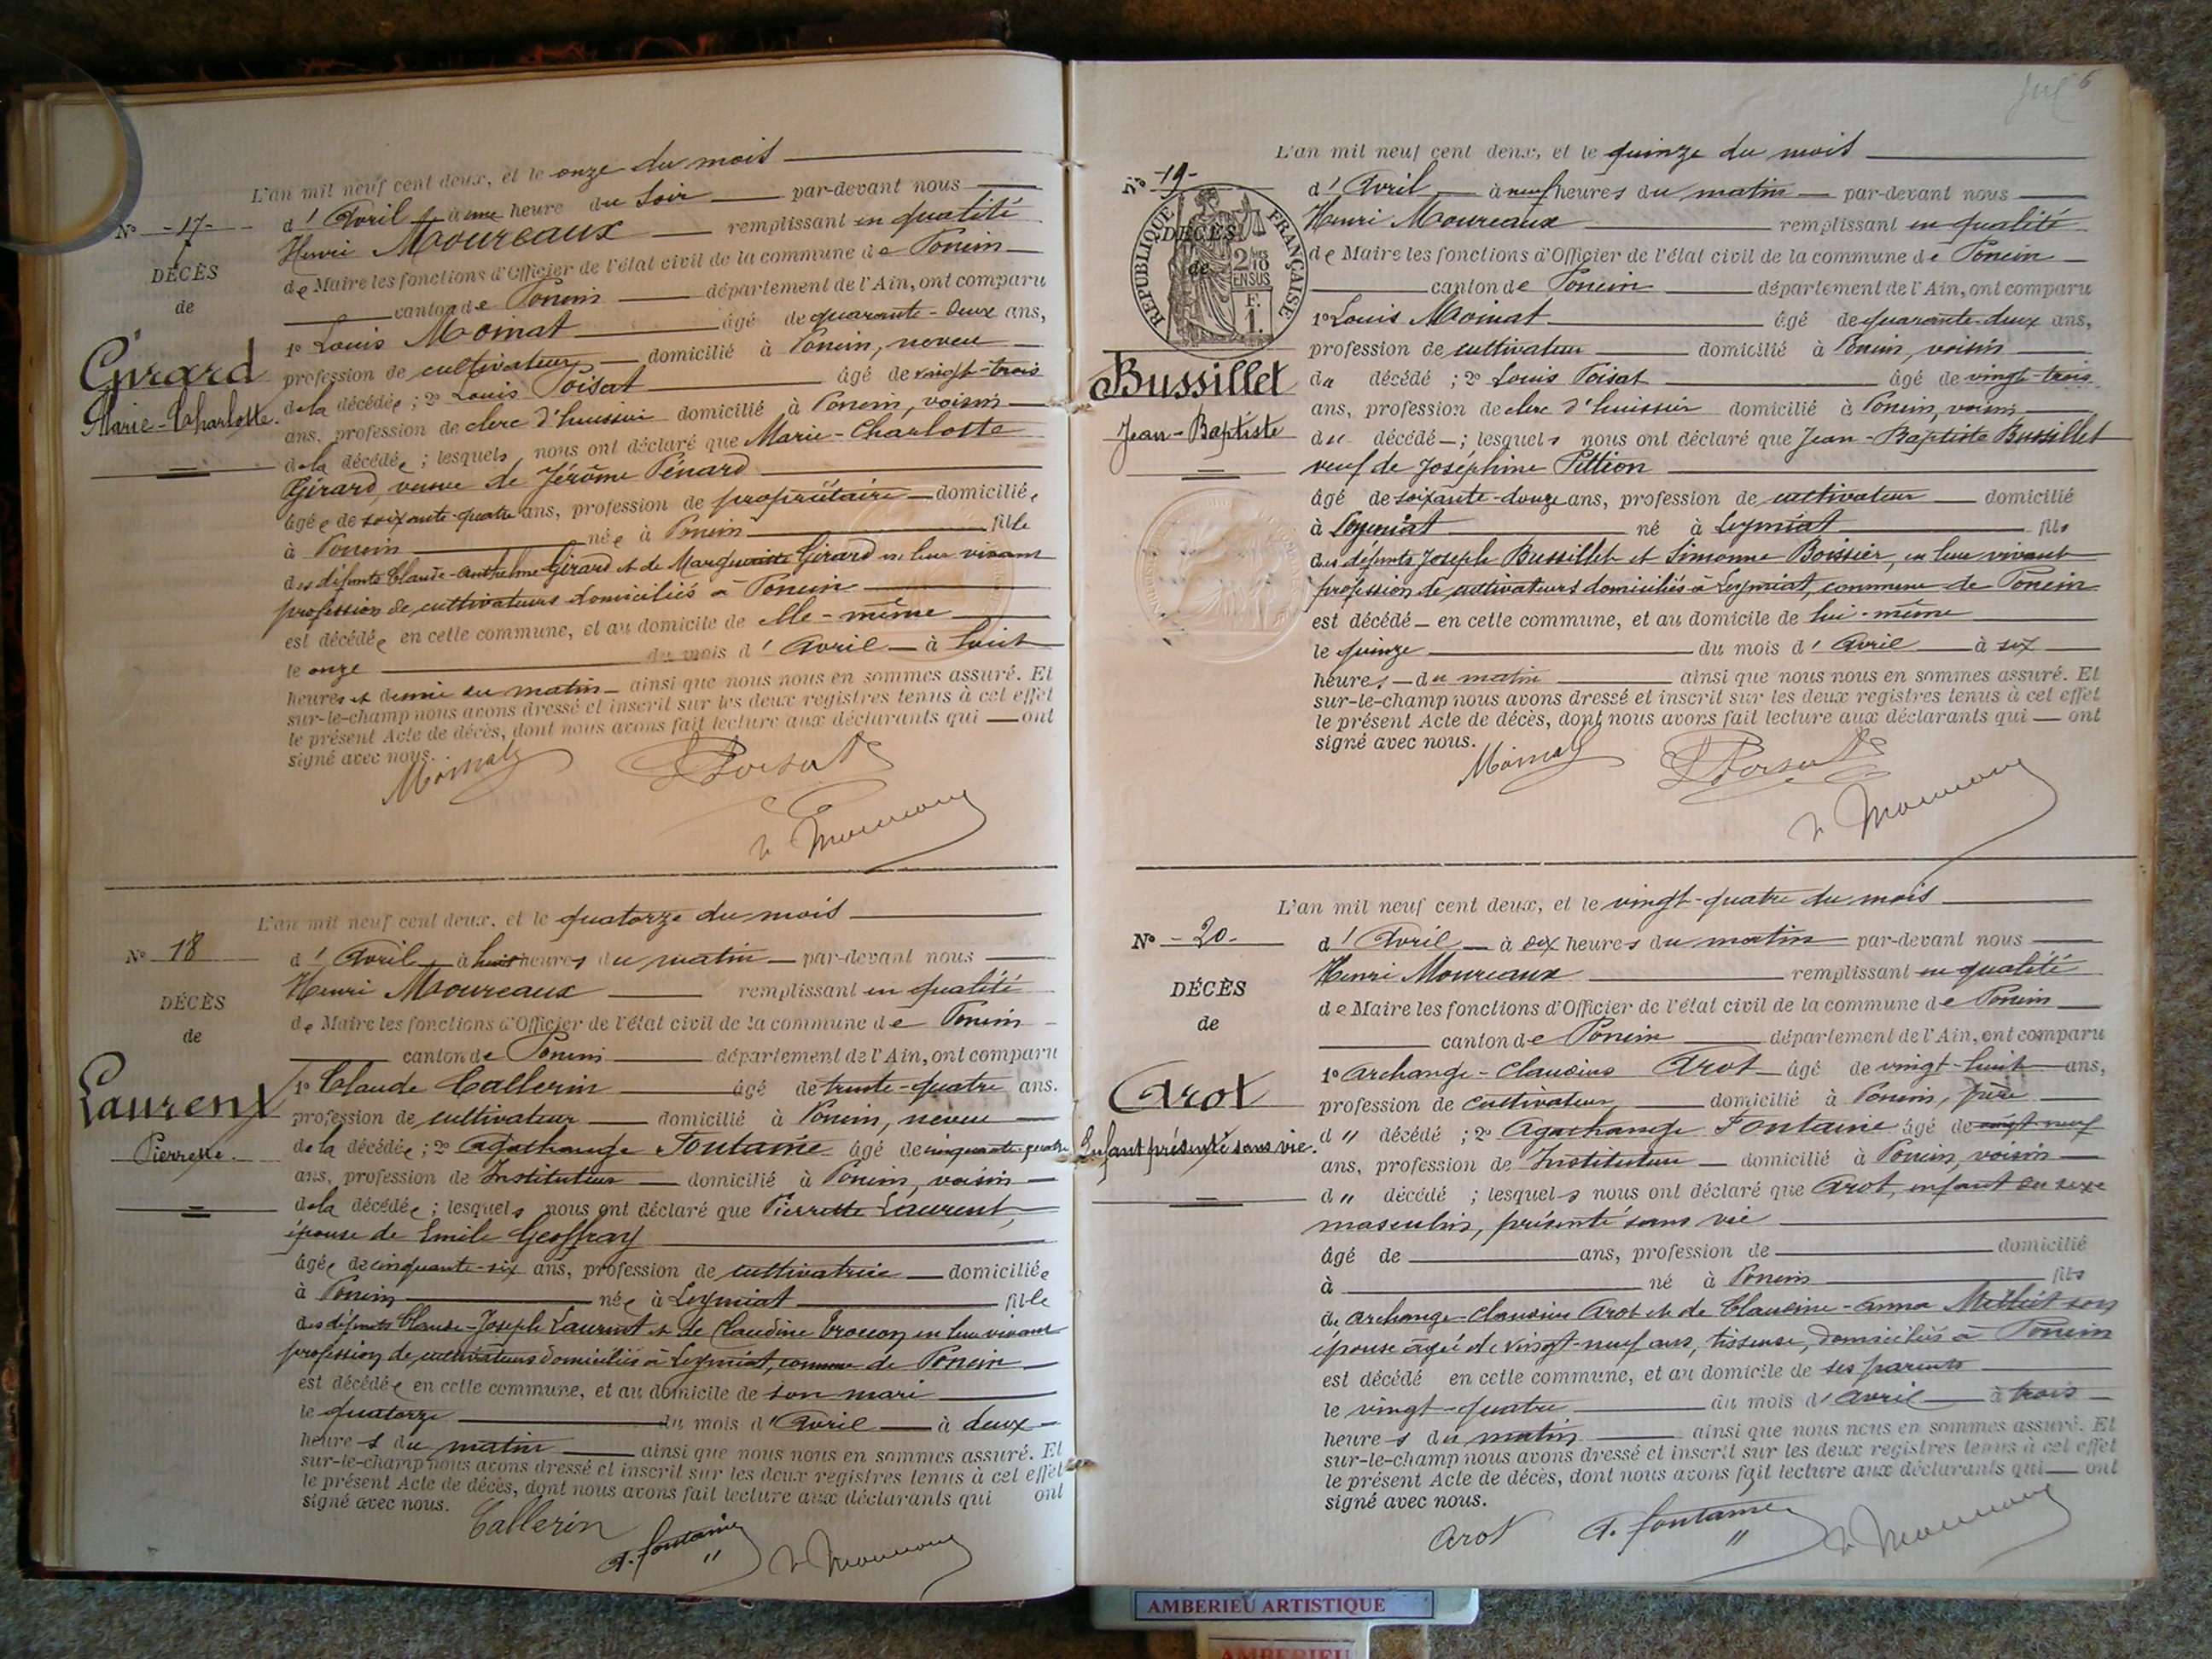 L'an mil neuf cent deux, et le onze du mois
N° -17-
d' Avril à une heure du soir par-devant nous
Henri Moureaux remplissant en qualité
DÉCÈS
de Maire les fonctions d'Officier de l'état civil de la commune de Poncin
de
canton de Poncin département de l'Ain, ont comparu
1° Louis Moinat âgé de quarante-deux ans,
Girard
profession de cultivateur domicilié à Poncin, neveu
Marie-Charlotte.
de la décédée ; 2° Louis Poisat âgé de vingt-trois
ans, profession de clerc d'huissier domicilié à Poncin, voisin
de la décédée ; lesquels nous ont déclaré que Marie-Charlotte
Girard, veuve de Jérôme Pénard
âgée de soixante-quatre ans, profession de propriétaire domiciliée
à Poncin née à Poncin fille
des défunts Claude-Anthelme Girard et de Marguerite Girard en leur vivant
profession de cultivateurs domiciliés à Poncin
est décédée en cette commune, et au domicile de elle-même
le onze du mois d' Avril à huit
heures et demie du matin ainsi que nous nous en sommes assuré. Et
sur-le-champ nous avons dressé et inscrit sur les deux registres tenus à cet effet
le présent Acte de décès, dont nous avons fait lecture aux déclarants qui ont
signé avec nous.
Moinat L Poisat
h Moureaux
L'an mil neuf cent deux, et le quatorze du mois
N° 18
d' Avril à huit heures du matin par-devant nous
Henri Moureaux remplissant en qualité
DÉCÈS
de Maire les fonctions d'Officier de l'état civil de la commune de Poncin
de
canton de Poncin département de l'Ain, ont comparu
1° Claude Callerin âgé de trente-quatre ans.
Laurent
profession de cultivateur domicilié à Poncin, neveu
Pierrette.
de la décédée ; 2° Agathange Fontaine âgé de cinquante-quatre
ans, profession de Instituteur domicilié à Poncin, voisin
de la décédée ; lesquels nous ont déclaré que Pierrette Laurent,
épouse de Emile Geoffray
âgée de cinquante-six ans, profession de cultivatrice domiciliée
à Poncin née à Leymiat fille
des défunts Claude-Joseph Laurent et de Claudine en leur vivant
profession de cultivateurs domiciliés à Leymiat, commune de Poncin
est décédée en cette commune, et au domicile de son mari
le quatorze du mois d' Avril à deux
heures du matin ainsi que nous nous en sommes assuré. Et
sur-le-champ nous avons dressé et inscrit sur les deux registres tenus à cet effet
le présent Acte de décès, dont nous avons fait lecture aux déclarants qui ont
signé avec nous.
Callerin
A. fontaine h Moureaux
6
L'an mil neuf cent deux, et le quinze du mois
N° -19-
d' Avril à neuf heures du matin par-devant nous
Henri Moureaux remplissant en qualité
RÉPUBLIQUE FRANÇAISE
DÉCÈS
2/10 EN SUS
F.
1.
de
de Maire les fonctions d'Officier de l'état civil de la commune de Poncin
canton de Poncin département de l'Ain, ont comparu
1° Louis Moinat âgé de quarante-deux ans,
profession de cultivateur domicilié à Poncin, voisin
Bussillet
du décédé ; 2° Louis Poisat âgé de vingt-trois
ans, profession de clerc d'huissier domicilié à Poncin, voisin
Jean-Baptiste
du décédé ; lesquels nous ont déclaré que Jean-Baptiste Bussillet
veuf de Joséphine Pittion
âgé de soixante-douze ans, profession de cultivateur domicilié
à Leymiat né à Leymiat fils
des défunts Joseph Bussillet et Simonne Boissier, en leur vivant
profession de cultivateurs domiciliés à Leymiat, commune de Poncin
est décédé en cette commune, et au domicile de lui-même
le quinze du mois d' Avril à six
heures du matin ainsi que nous nous en sommes assuré. Et
sur-le-champ nous avons dressé et inscrit sur les deux registres tenus à cet effet
le présent Acte de décès, dont nous avons fait lecture aux déclarants qui ont
signé avec nous.
Moinat L Poisat
h Moureaux
L'an mil neuf cent deux, et le vingt-quatre du mois
N° -20-
d' Avril à dix heures du matin par-devant nous
Henri Moureaux remplissant en qualité
DÉCÈS
de Maire les fonctions d'Officier de l'état civil de la commune de Poncin
de
canton de Poncin département de l'Ain, ont comparu
1° Archange-Claudius Arot âgé de vingt-huit ans,
Arot
profession de cultivateur domicilié à Poncin, père
Enfant présenté sans vie.
d" décédé ; 2° Agathange Fontaine âgé de vingt-neuf
ans, profession de Instituteur domicilié à Poncin, voisin
d" décédé ; lesquels nous ont déclaré que Arot, enfant du sexe
masculin, présenté sans vie
âgé de ans, profession de domicilié
à né à Poncin fils
de Archange-Claudius Arot et de Claudine-Anna son
épouse âgée de vingt-neuf ans, tisseuse, domiciliés à Poncin
est décédé en cette commune, et au domicile de ses parents
le vingt-quatre du mois d' Avril à trois
heures du matin ainsi que nous nous en sommes assuré. Et
sur-le-champ nous avons dressé et inscrit sur les deux registres tenus à cet effet
le présent Acte de décès, dont nous avons fait lecture aux déclarants qui ont
signé avec nous.
Arot A. fontaine h Moureaux
AMBERIEU ARTISTIQUE
AMBERIEU